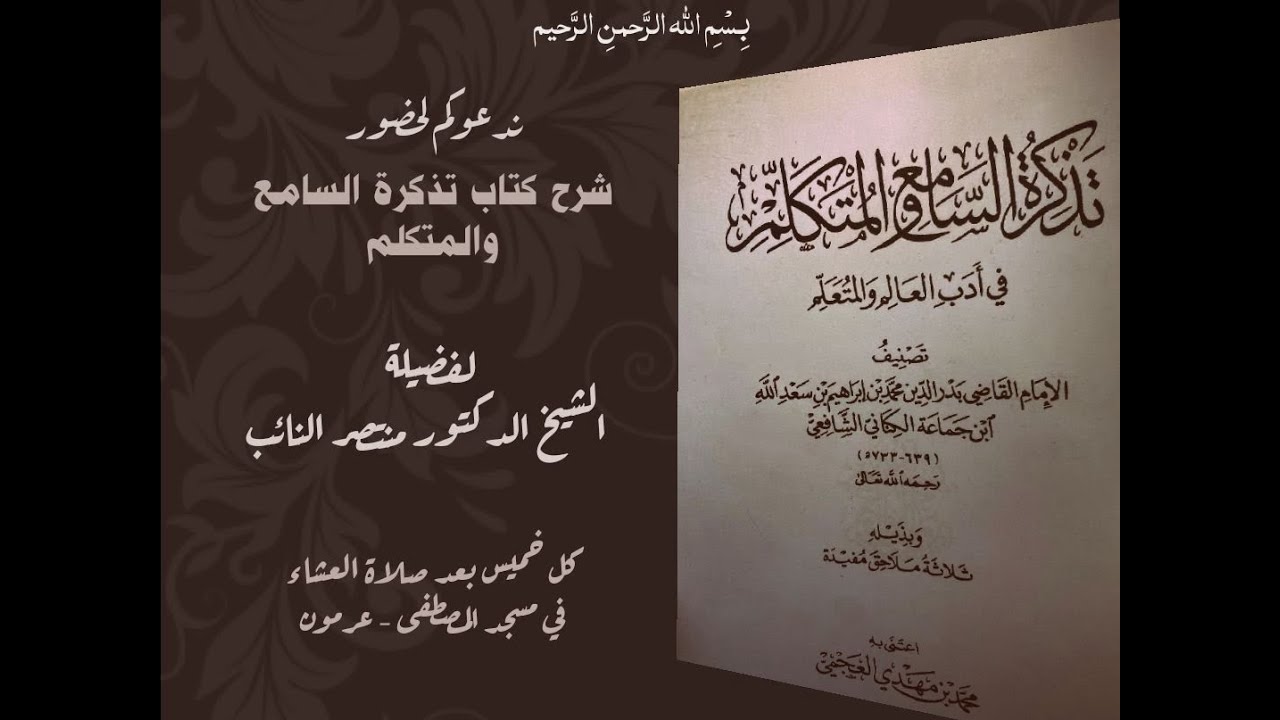 بِسْمِ اللهِ الرَّحمنِ الرَّحيم
ندعوكم لحضور
شرح كتاب تذكرة السامع
والمتكلم
لفضيلة
الشيخ الدكتور منتصر النائب
كل خميس بعد صلاة العشاء
في مسجد المصطفى - عرمون
تَذْكِرَةُ السَّامِعِ وَالمُتَكَلِّمِ
في أَدَبِ العَالِمِ وَالمُتَعَلِّمِ
تَصْنِيفُ
الإِمَامِ القَاضِي بَدْرِ الدِّينِ مُحَمَّدِ بْنِ إِبْرَاهِيمَ بْنِ سَعْدِ اللَّهِ
ابْنِ جَمَاعَةَ الكِنَانِيِّ الشَّافِعِيِّ
(٦٣٩-٧٣٣ه)
رَحِمَهُ اللَّهُ تَعَالَىٰ
وَبِذَيْلِهِ
ثَلَاثَةُ مَلَاحِقَ مُفِيدَة
اعتَنىٰ بِهِ
مُحَمَّدُ بْنُ مَهْدِي العَجْمِيُّ